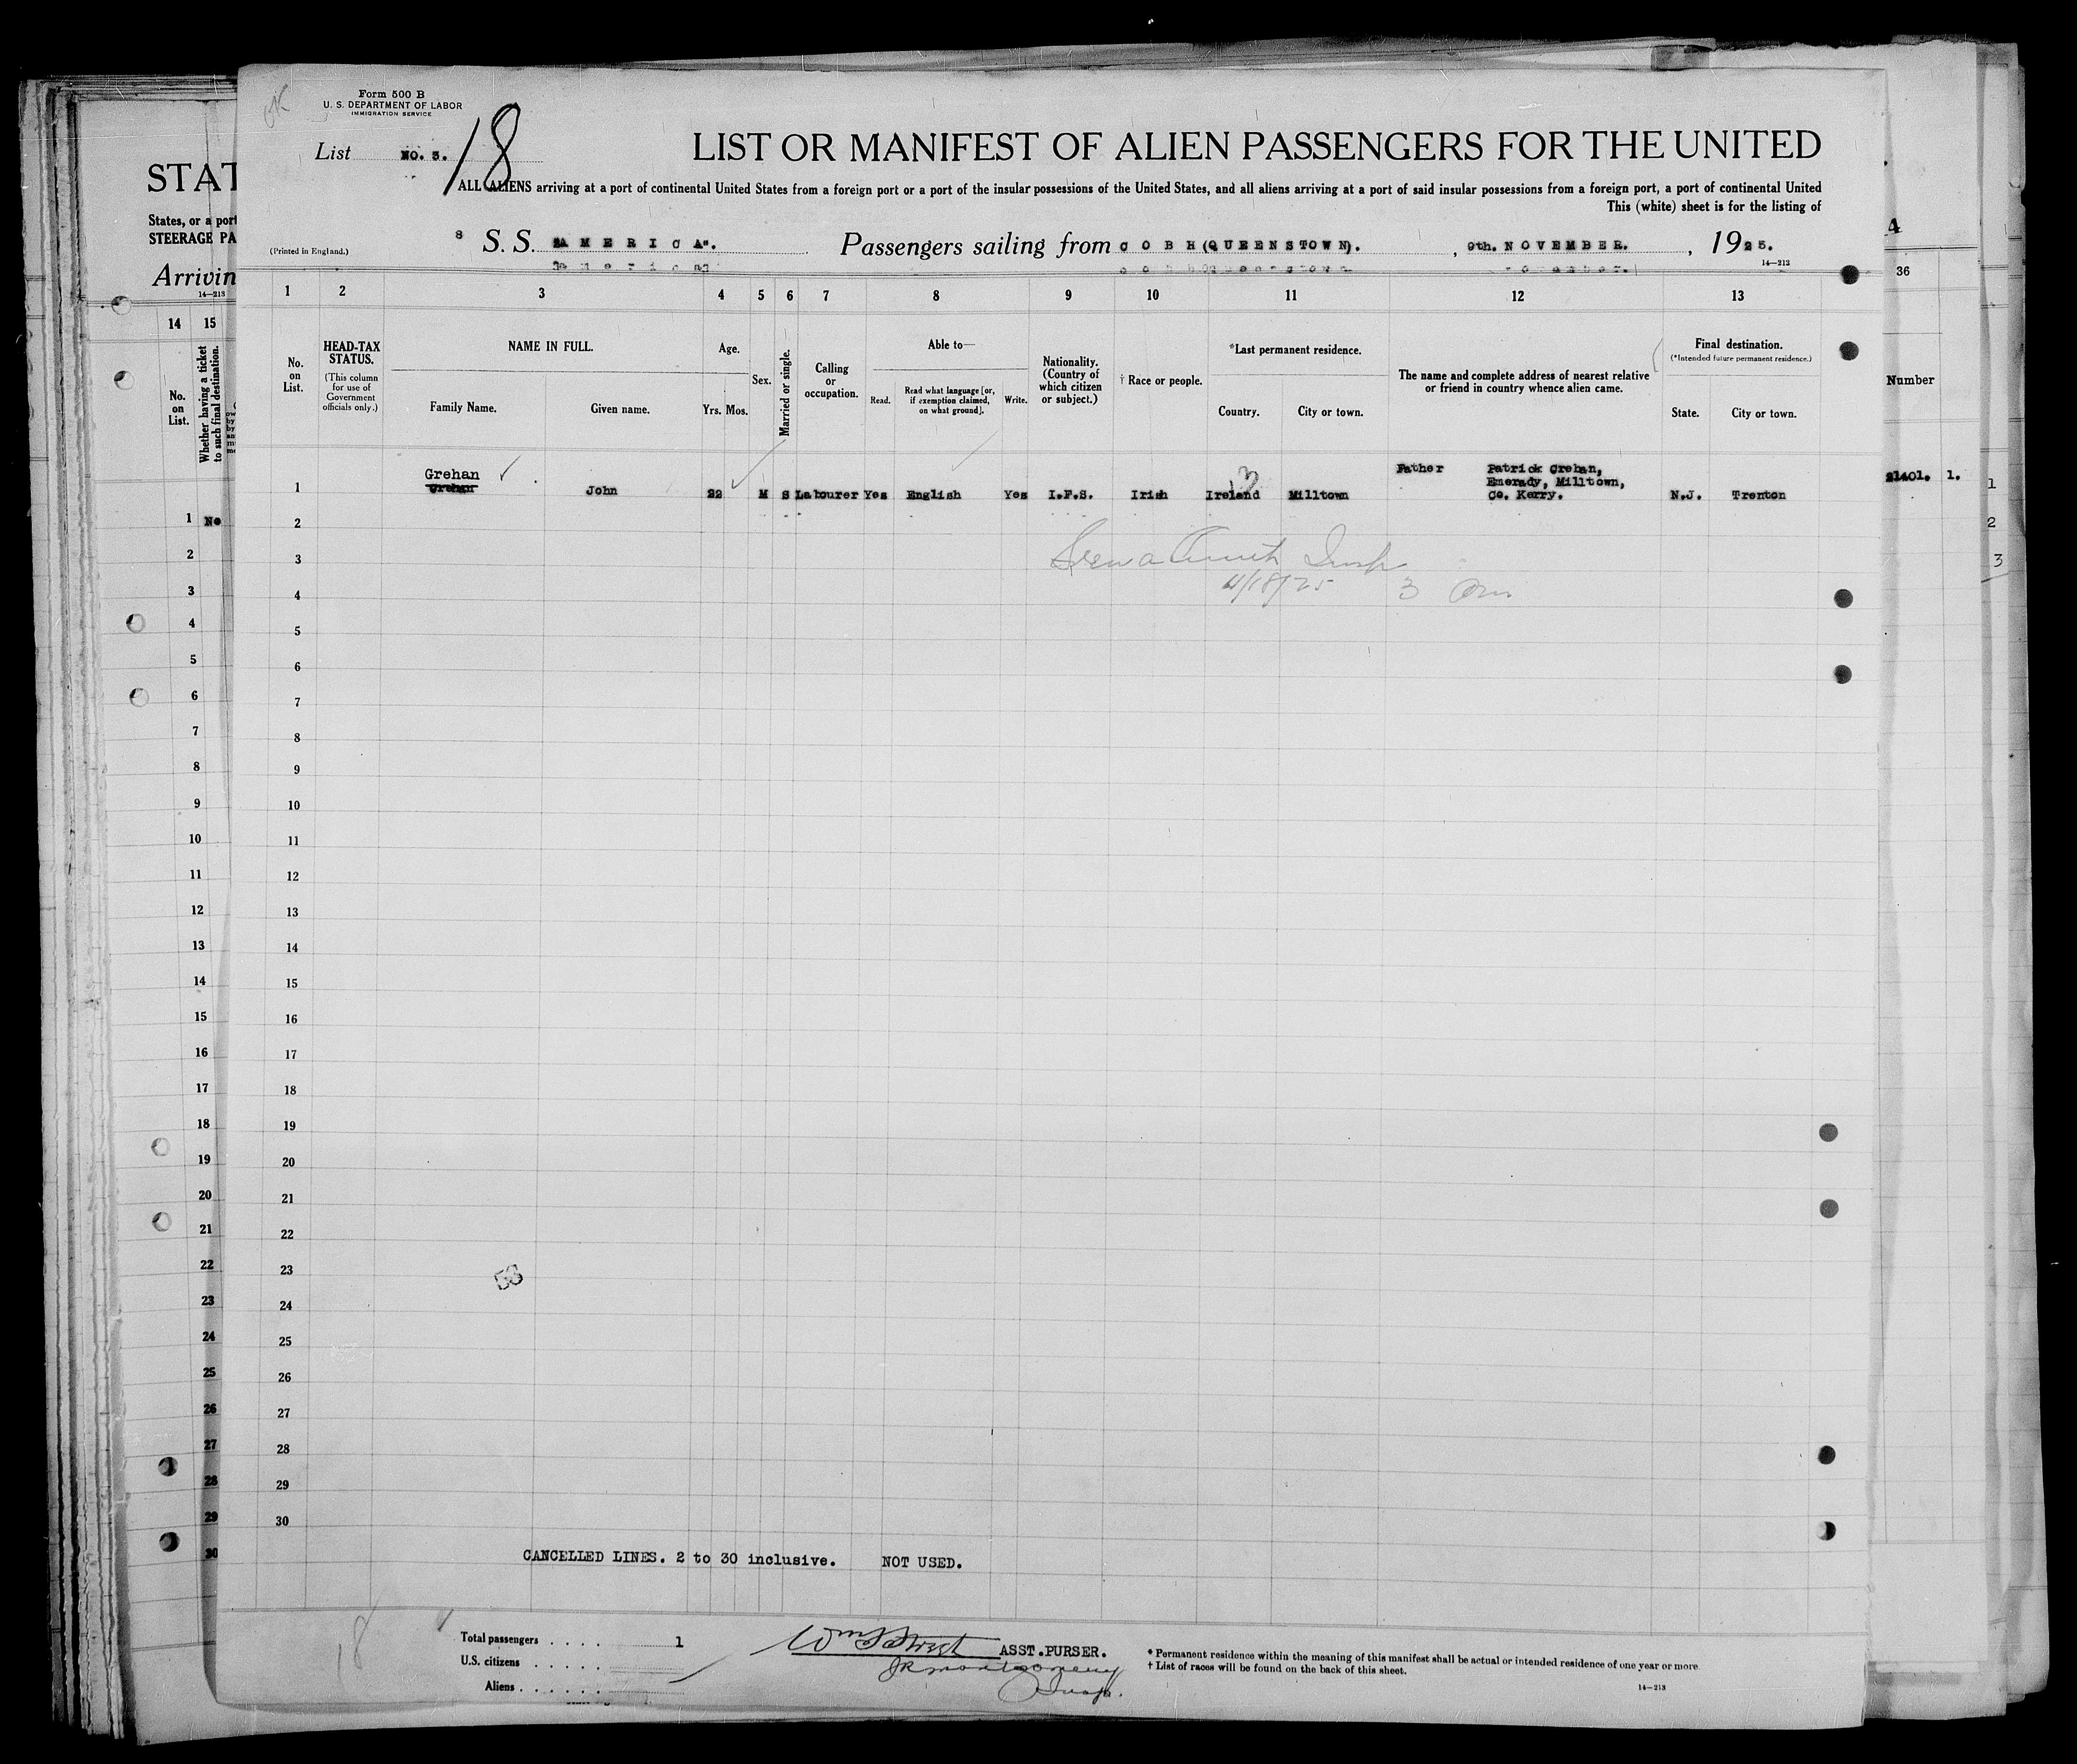 Form 500 B
U. S. DEPARTMENT OF LABOR
IMMIGRATION SERVICE
List NO. 3. 18
LIST OR MANIFEST OF ALIEN PASSENGERS FOR THE UNITED
ALL ALIENS arriving at a port of continental United States from a foreign port or a port of the insular possessions of the United States, and all aliens arriving at a port of said insular possessions from a foreign port, a port of continental United
This (white) sheet is for the listing of
(Printed in England.)
8 S. S. "A M E R I C A". Passengers sailing from C O B H (QUEENSTOWN). , 9th. NOVEMBER. , 1925.
14—213
1 2 3 4 5 6 7 8 9 10 11 12 13
No. on List.
HEAD-TAX STATUS.
(This column for use of Government officials only.)
NAME IN FULL.
Family Name. Given name.
Age.
Yrs. Mos.
Sex.
Married or single.
Calling or occupation.
Able to—
Read. Read what language [or, if exemption claimed, on what ground]. Write.
Nationality. (Country of which citizen or subject.)
† Race or people.
*Last permanent residence.
Country. City or town.
The name and complete address of nearest relative or friend in country whence alien came.
Final destination.
(*Intended future permanent residence.)
State. City or town.
Grehan
1 Grehan John 22 M S Labourer Yes English Yes I.F.S. Irish Ireland Milltown Father Patrick Grehan, Emerady, Milltown, Co. Kerry. N.J. Trenton
2
3
11/18/25 3
4
5
6
7
8
9
10
11
12
13
14
15
16
17
18
19
20
21
22
23
24
25
26
27
28
29
30
CANCELLED LINES. 2 to 30 inclusive. NOT USED.
18
Total passengers . . . . 1
U.S. citizens . . . . .
Aliens . . . . . .
ASST.PURSER.
JR Montgomery
Insp.
* Permanent residence within the meaning of this manifest shall be actual or intended residence of one year or more.
† List of races will be found on the back of this sheet.
14—213
STAT
States, or a port
STEERAGE PA
Arrivin
14—213
14 15
No. on List.
Whether having a ticket to such final destination.
1 No
2
3
4
5
6
7
8
9
10
11
12
13
14
15
16
17
18
19
20
21
22
23
24
25
26
27
28
29
30
4
36
Number
21401. 1.
1
2
3